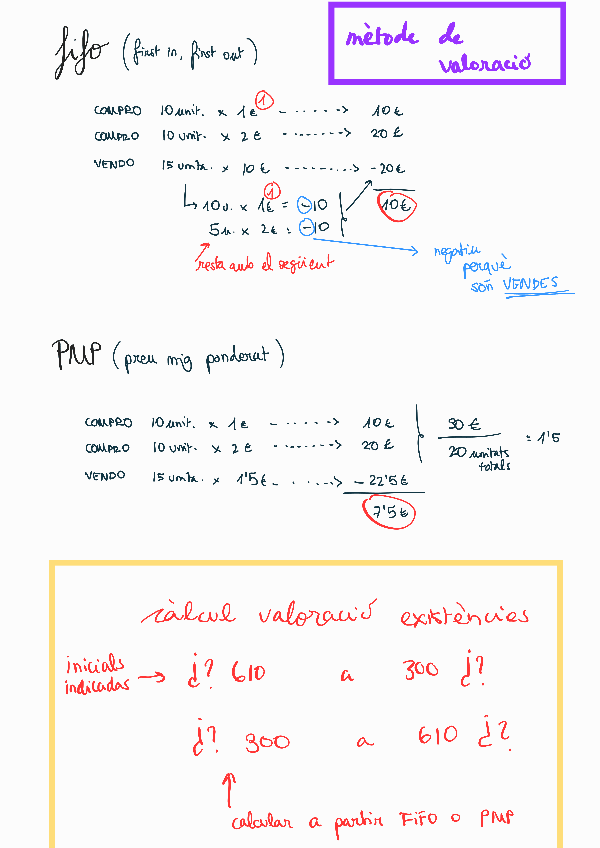 mètode de
valoració
fifo (first in, first out)
1
COMPRO 10 unit. x 1€ - - - - - -> 10€
COMPRO 10 unit. x 2€ - - - - - - -> 20€
VENDO 15 unita. x 10€ - - - - - - - -> -20€
1
10u. x 1€ = -10
10€
5u. x 2€ = -10
resta amb el següent
negatiu
perquè
són VENDES
PMP (preu mig ponderat)
COMPRO 10 unit. x 1€ - - - - - - -> 10€
30€
= 1'5
COMPRO 10 unit. x 2€ - - - - - - -> 20€
20 unitats
totals
VENDO 15 unita. x 1'5€ - - - - - -> -22'5€
7'5€
càlcul valoració existències
inicials
indicadas
¿? 610 a 300 ¿?
¿? 300 a 610 ¿?
calcular a partir FIFO o PMP